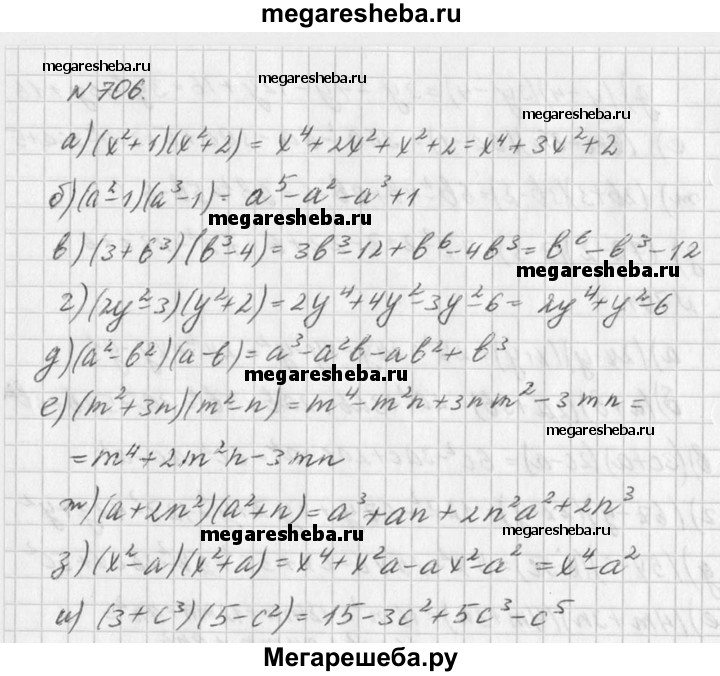 megaresheba.ru
megaresheba.ru
megaresheba.ru
№ 706.
а) (x²+1)(x²+2) = x⁴+2x²+x²+2=x⁴+3x²+2
б) (a²-1)(a³-1) = a⁵-a²-a³+1
megaresheba.ru
в) (3+b³)(b³-4) = 3b³-12+b⁶-4b³= b⁶-b³-12
megaresheba.ru
г) (2y²-3)(y²+2) = 2y⁴+4y²-3y²-6= 2y⁴+y²-6
д) (a²-b²)(a-b) = a³-a²b-ab²+b³
megaresheba.ru
е) (m²+3n)(m²-n) = m⁴-m²n+3nm²-3mn=
megaresheba.ru
=m⁴+2m²n-3mn
ж) (a+2n²)(a²+n) = a³+an+2n²a²+2n³
megaresheba.ru
megaresheba.ru
з) (x²-a)(x²+a) = x⁴+x²a-ax²-a² =x⁴-a²
и) (3+c³)(5-c²) = 15-3c²+5c³-c⁵
megaresheba.ru
Мегарешеба.ру